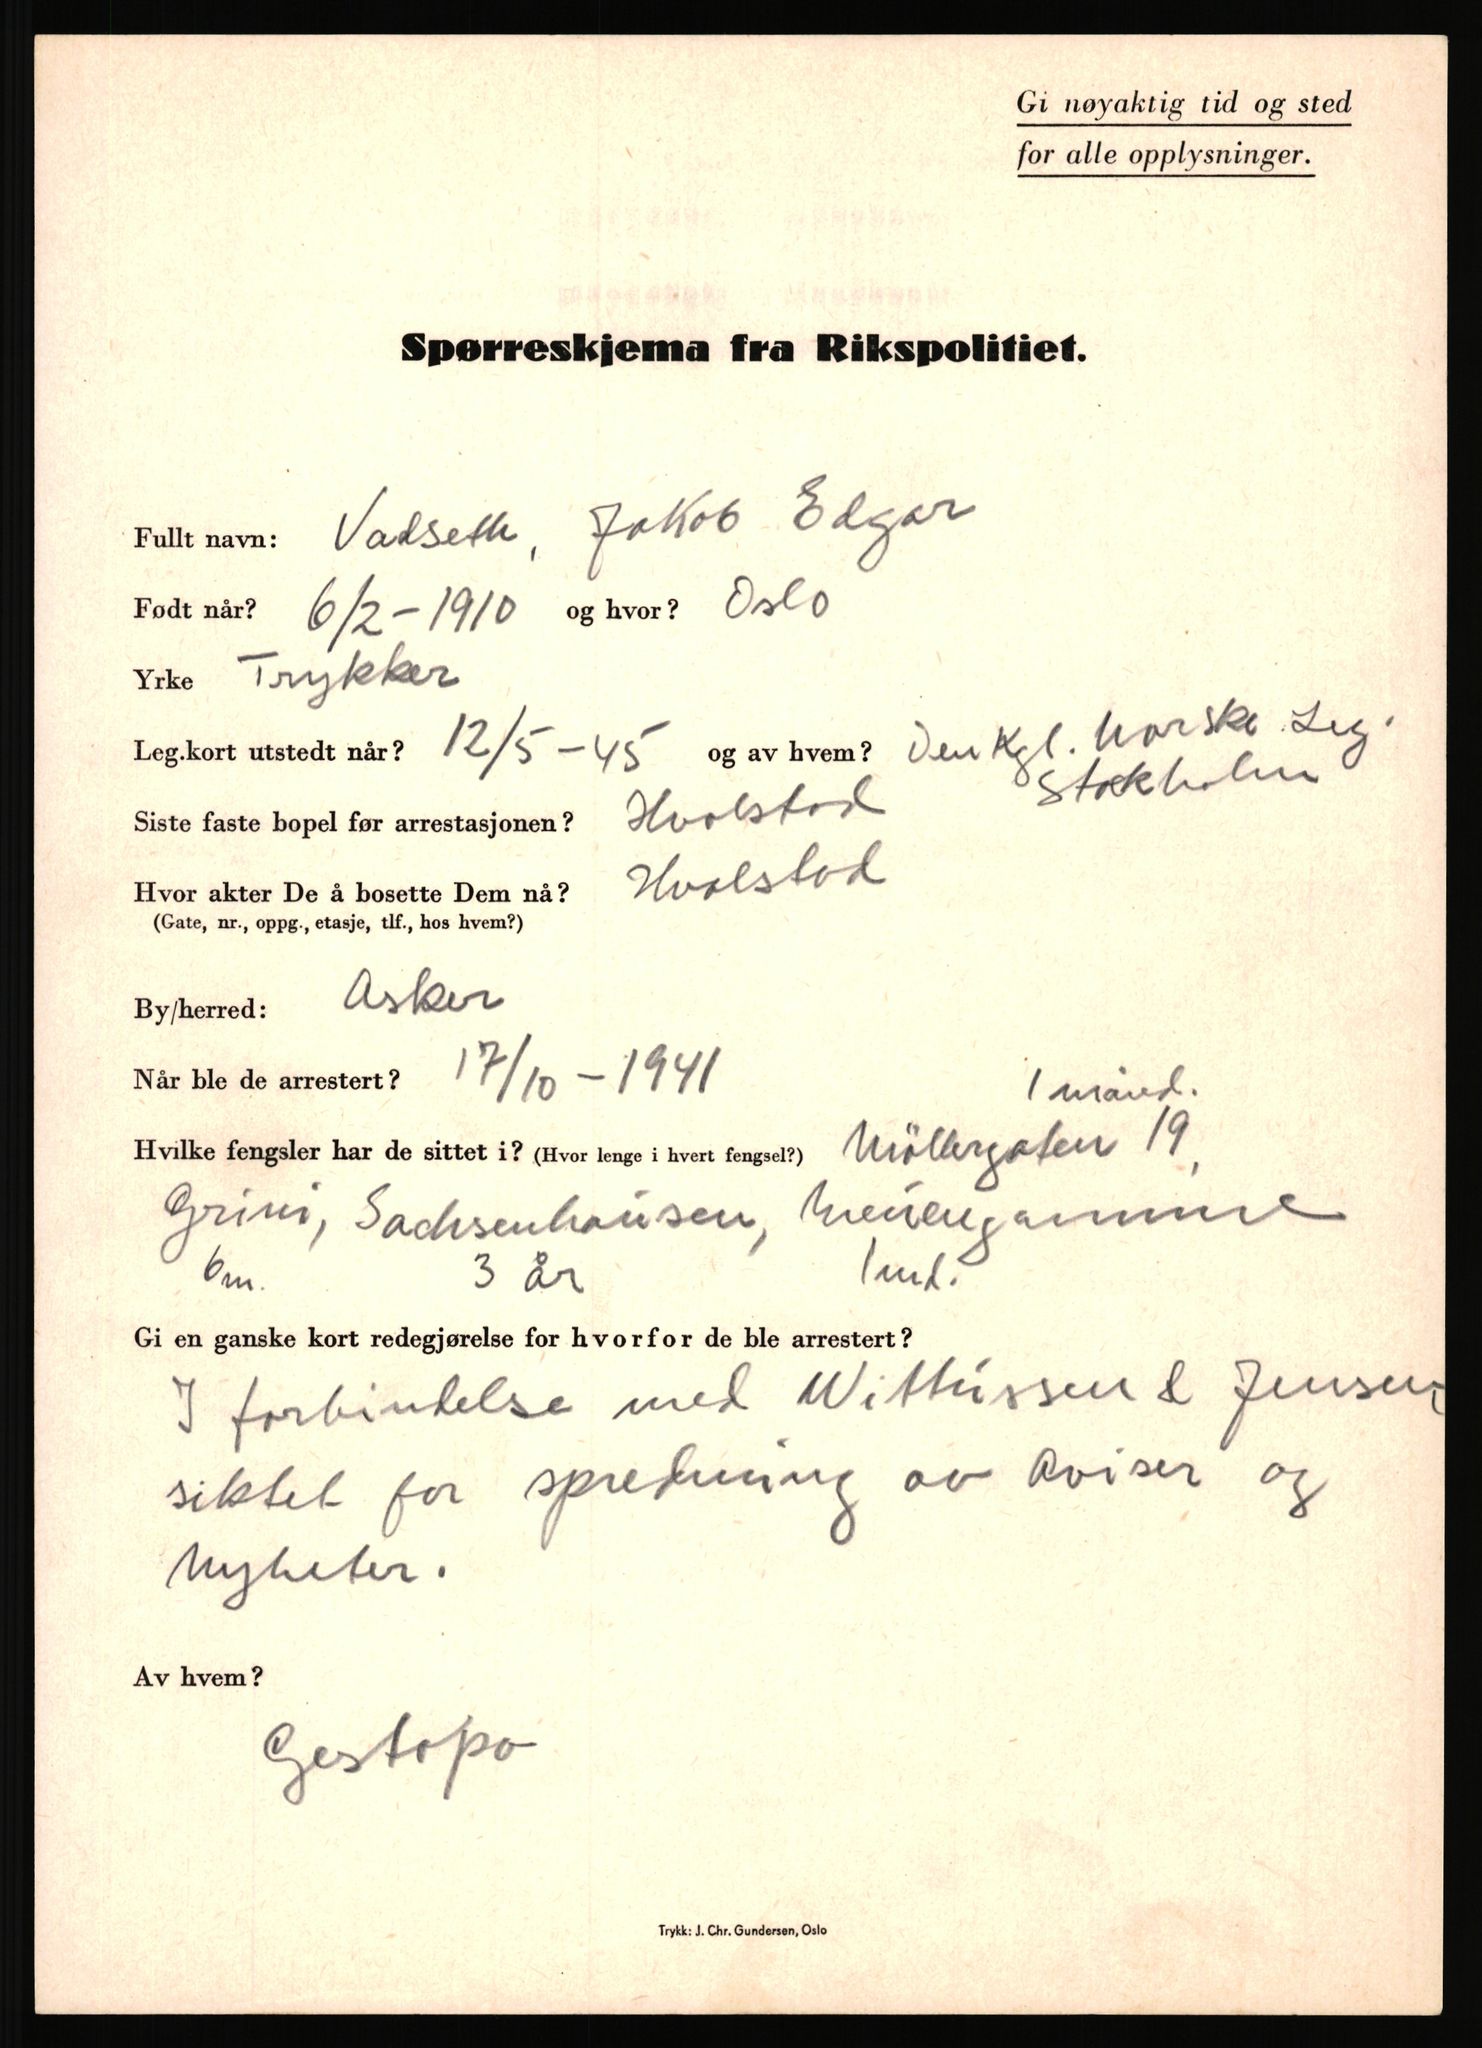 Gi nøyaktig tid og sted
for alle opplysninger.
Spørreskjema fra Rikspolitiet.
Fullt navn: Vadseth, Jakob Edgar
Født når? 6/2 – 1910 og hvor? Oslo
Yrke Trykker
Leg.kort utstedt når? 12/5 – 45 og av hvem? Den Kgl. Norske Leg.
Stockholm
Siste faste bopel før arrestasjonen? Hvalstad
Hvor akter De å bosette Dem nå? Hvalstad
(Gate, nr., oppg., etasje, tlf., hos hvem?)
By/herred: Asker
Når ble de arrestert? 17/10 – 1941
1 måned.
Hvilke fengsler har de sittet i? (Hvor lenge i hvert fengsel?) Möllergaten 19,
Grini, Sachsenhausen, Neuengamme
6m. 3 år 1 md.
Gi en ganske kort redegjørelse for hvorfor de ble arrestert?
I forbindelse med Withussen & Jensen,
siktet for spredning av Aviser og
Nyheter.
Av hvem?
Gestapo
Trykk: J. Chr. Gundersen, Oslo